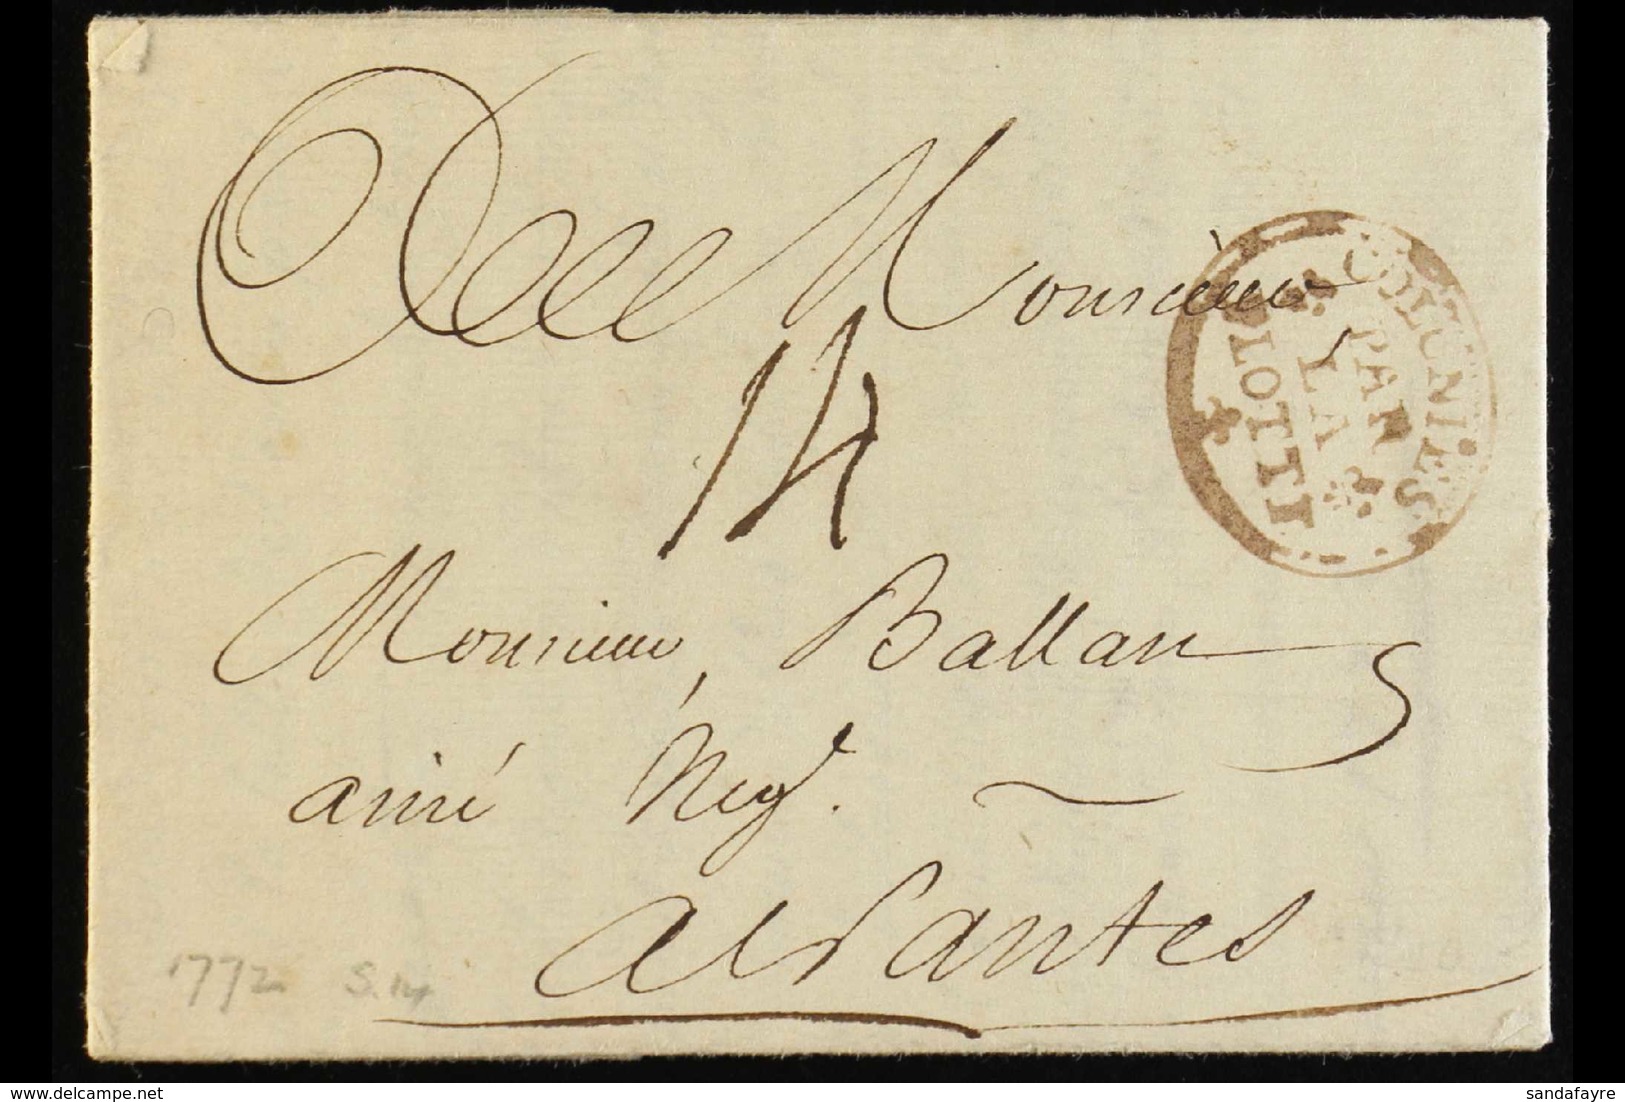 A Monsieur
14
COLONIES
PAR
LA
FLOTTI
Monsieur, Ballan
ainé Neg.t
A Nantes
1772 S.14
sandafayre